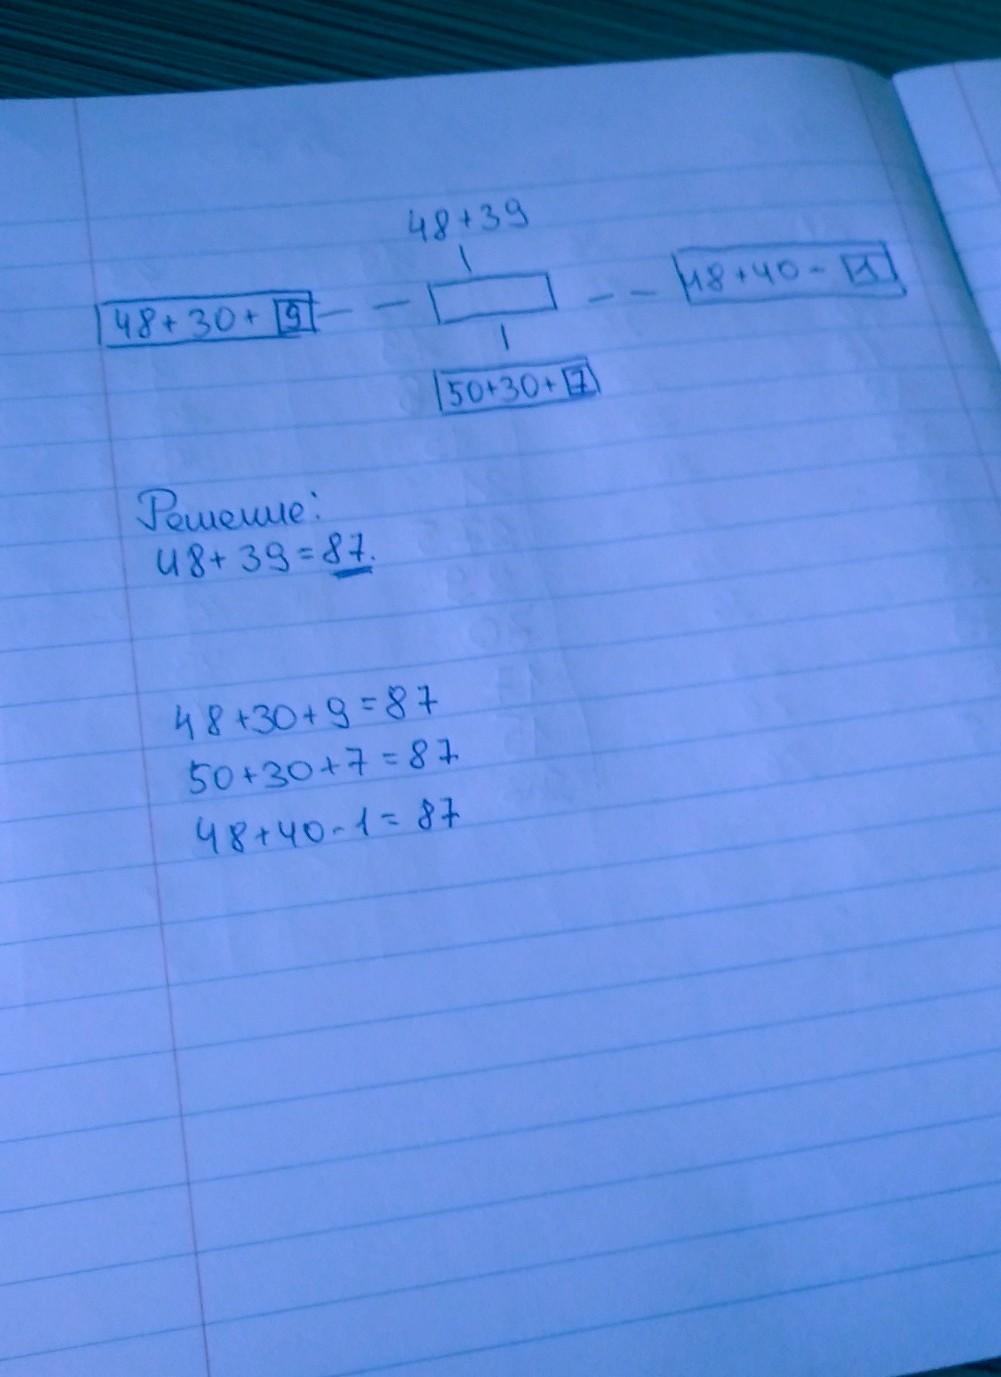 48+39
48+30+9
48+40-1
50+30+7
Решение:
48+39=87.
48+30+9=87
50+30+7=87
48+40-1=87